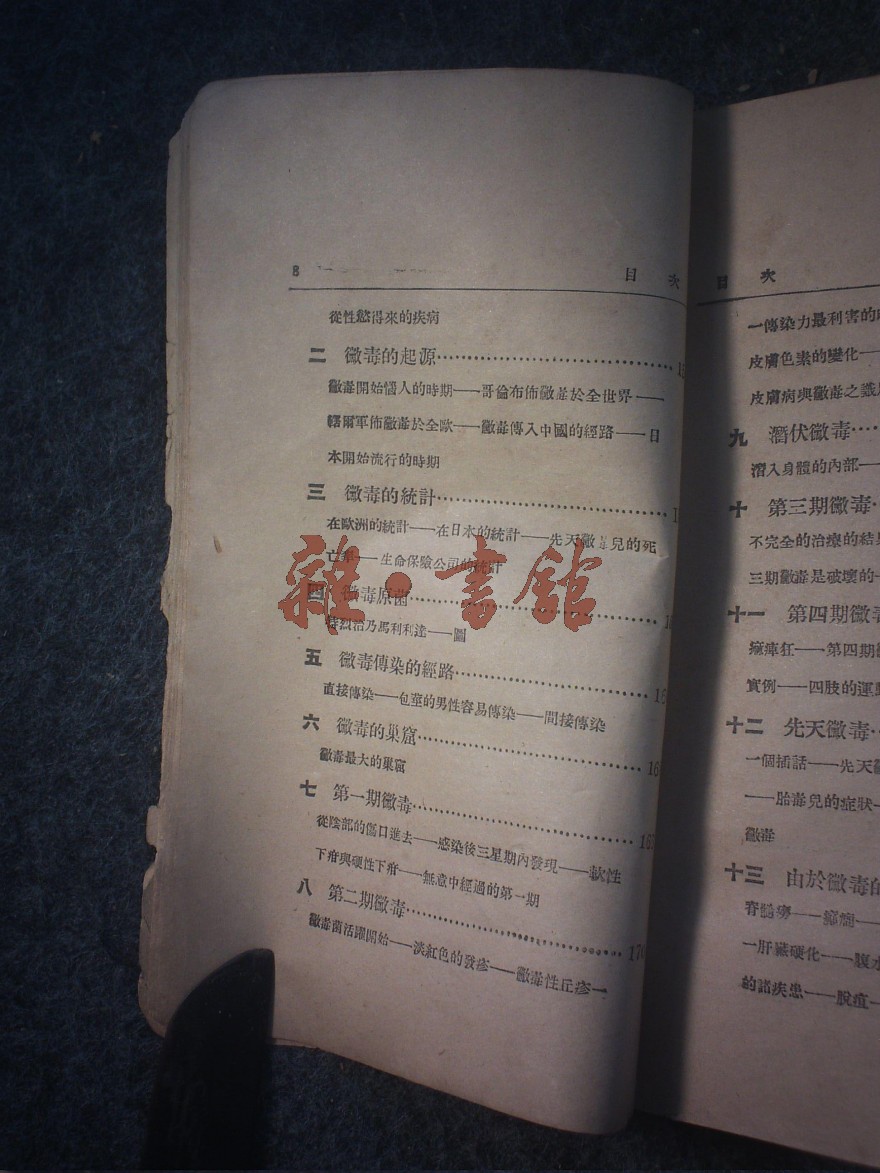 8 目次
從性慾得來的疾病
二 黴毒的起源
黴毒開始惱人的時期——哥倫布佈黴毒於全世界——
轄爾軍佈黴毒於全歐——黴毒傳入中國的經路——日
本開始流行的時期
三 黴毒的統計
在歐洲的統計——在日本的統計——先天黴毒兒的死
亡——生命保險公司的統計
四 黴毒原菌
乃馬利利達——圖
五 黴毒傳染的經路
直接傳染——包莖的男性容易傳染——間接傳染
六 黴毒的巢窟 16
黴毒最大的巢窟
七 第一期黴毒
從陰部的傷口進去——感染後三星期內發現——軟性
下疳與硬性下疳——無意中經過的第一期
八 第二期黴毒 170
黴毒菌活躍開始——淡紅色的發疹——黴毒性丘疹—
雜·書館
目次
—傳染力最利害的
皮膚色素的變化——
皮膚病與黴毒之
九 潛伏黴毒
潛入身體的內部——
十 第三期黴毒
不完全的治療的結
三期黴毒是破壞的
十一 第四期黴
痲痺狂——第四期
實例——四肢的運
十二 先天黴毒
一個插話——先天
——胎毒兒的症狀
黴毒
十三 由於黴毒的
脊髓癆——癲癇——
—肝臟硬化——腹水
的諸疾患——脫疽